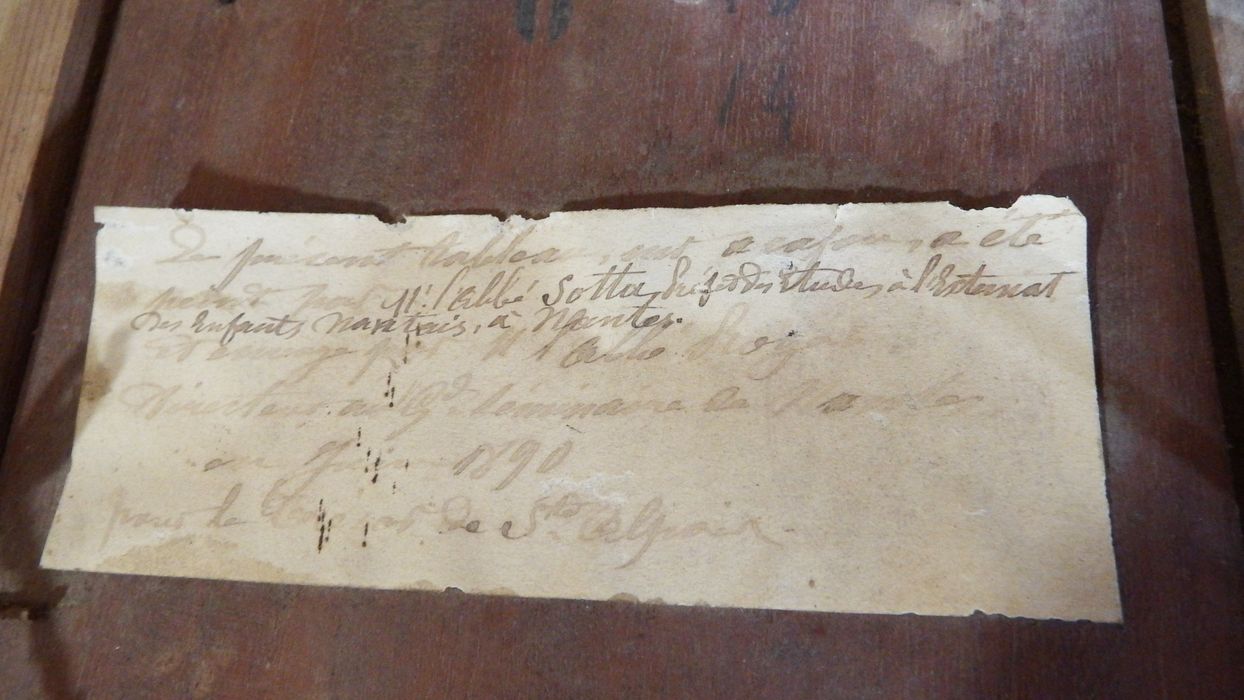 Le présent tableau, sur acajou, a été
peint par M. l'abbé Sotta Préfet des études à l'Externat
des Enfants Nantais, à Nantes.
et par M l'abbé
Directeur au Gd. Séminaire de Nantes
en Juin 1890
pour le de Ste